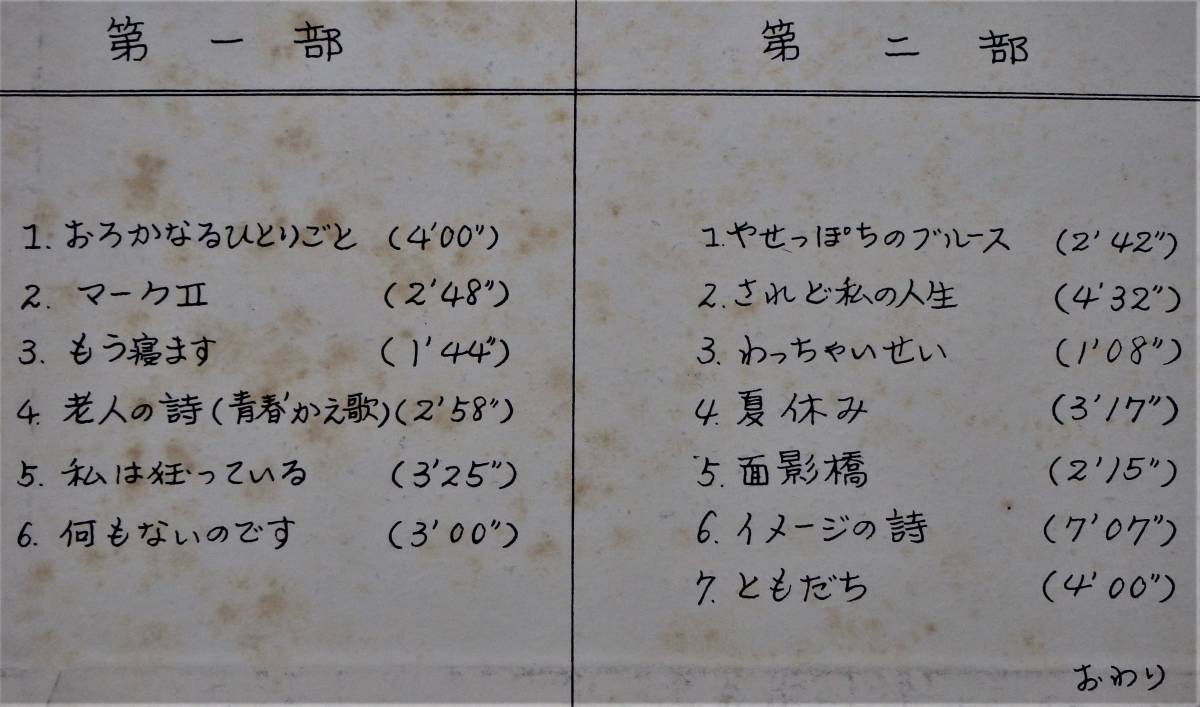 第一部
1. おろかなるひとりごと (4'00")
2. マークⅡ (2'48")
3. もう寝ます (1'44")
4. 老人の詩(青春かえ歌)(2'58")
5. 私は狂っている (3'25")
6. 何もないのです (3'00")
第二部
1. やせっぽちのブルース (2'42")
2. されど私の人生 (4'32")
3. わっちゃいせい (1'08")
4. 夏休み (3'17")
5. 面影橋 (2'15")
6. イメージの詩 (7'07")
7. ともだち (4'00")
おわり